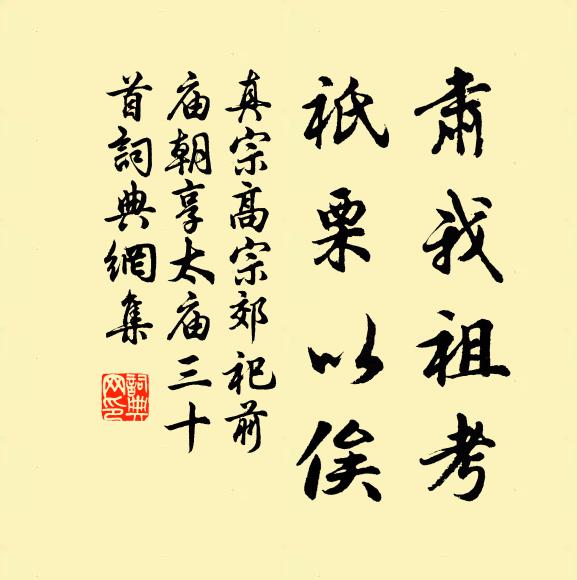 肅我祖考
祇栗以俟
真宗高宗郊祀前
庙朝享太庙三十
首詞典網集
詞典
网印